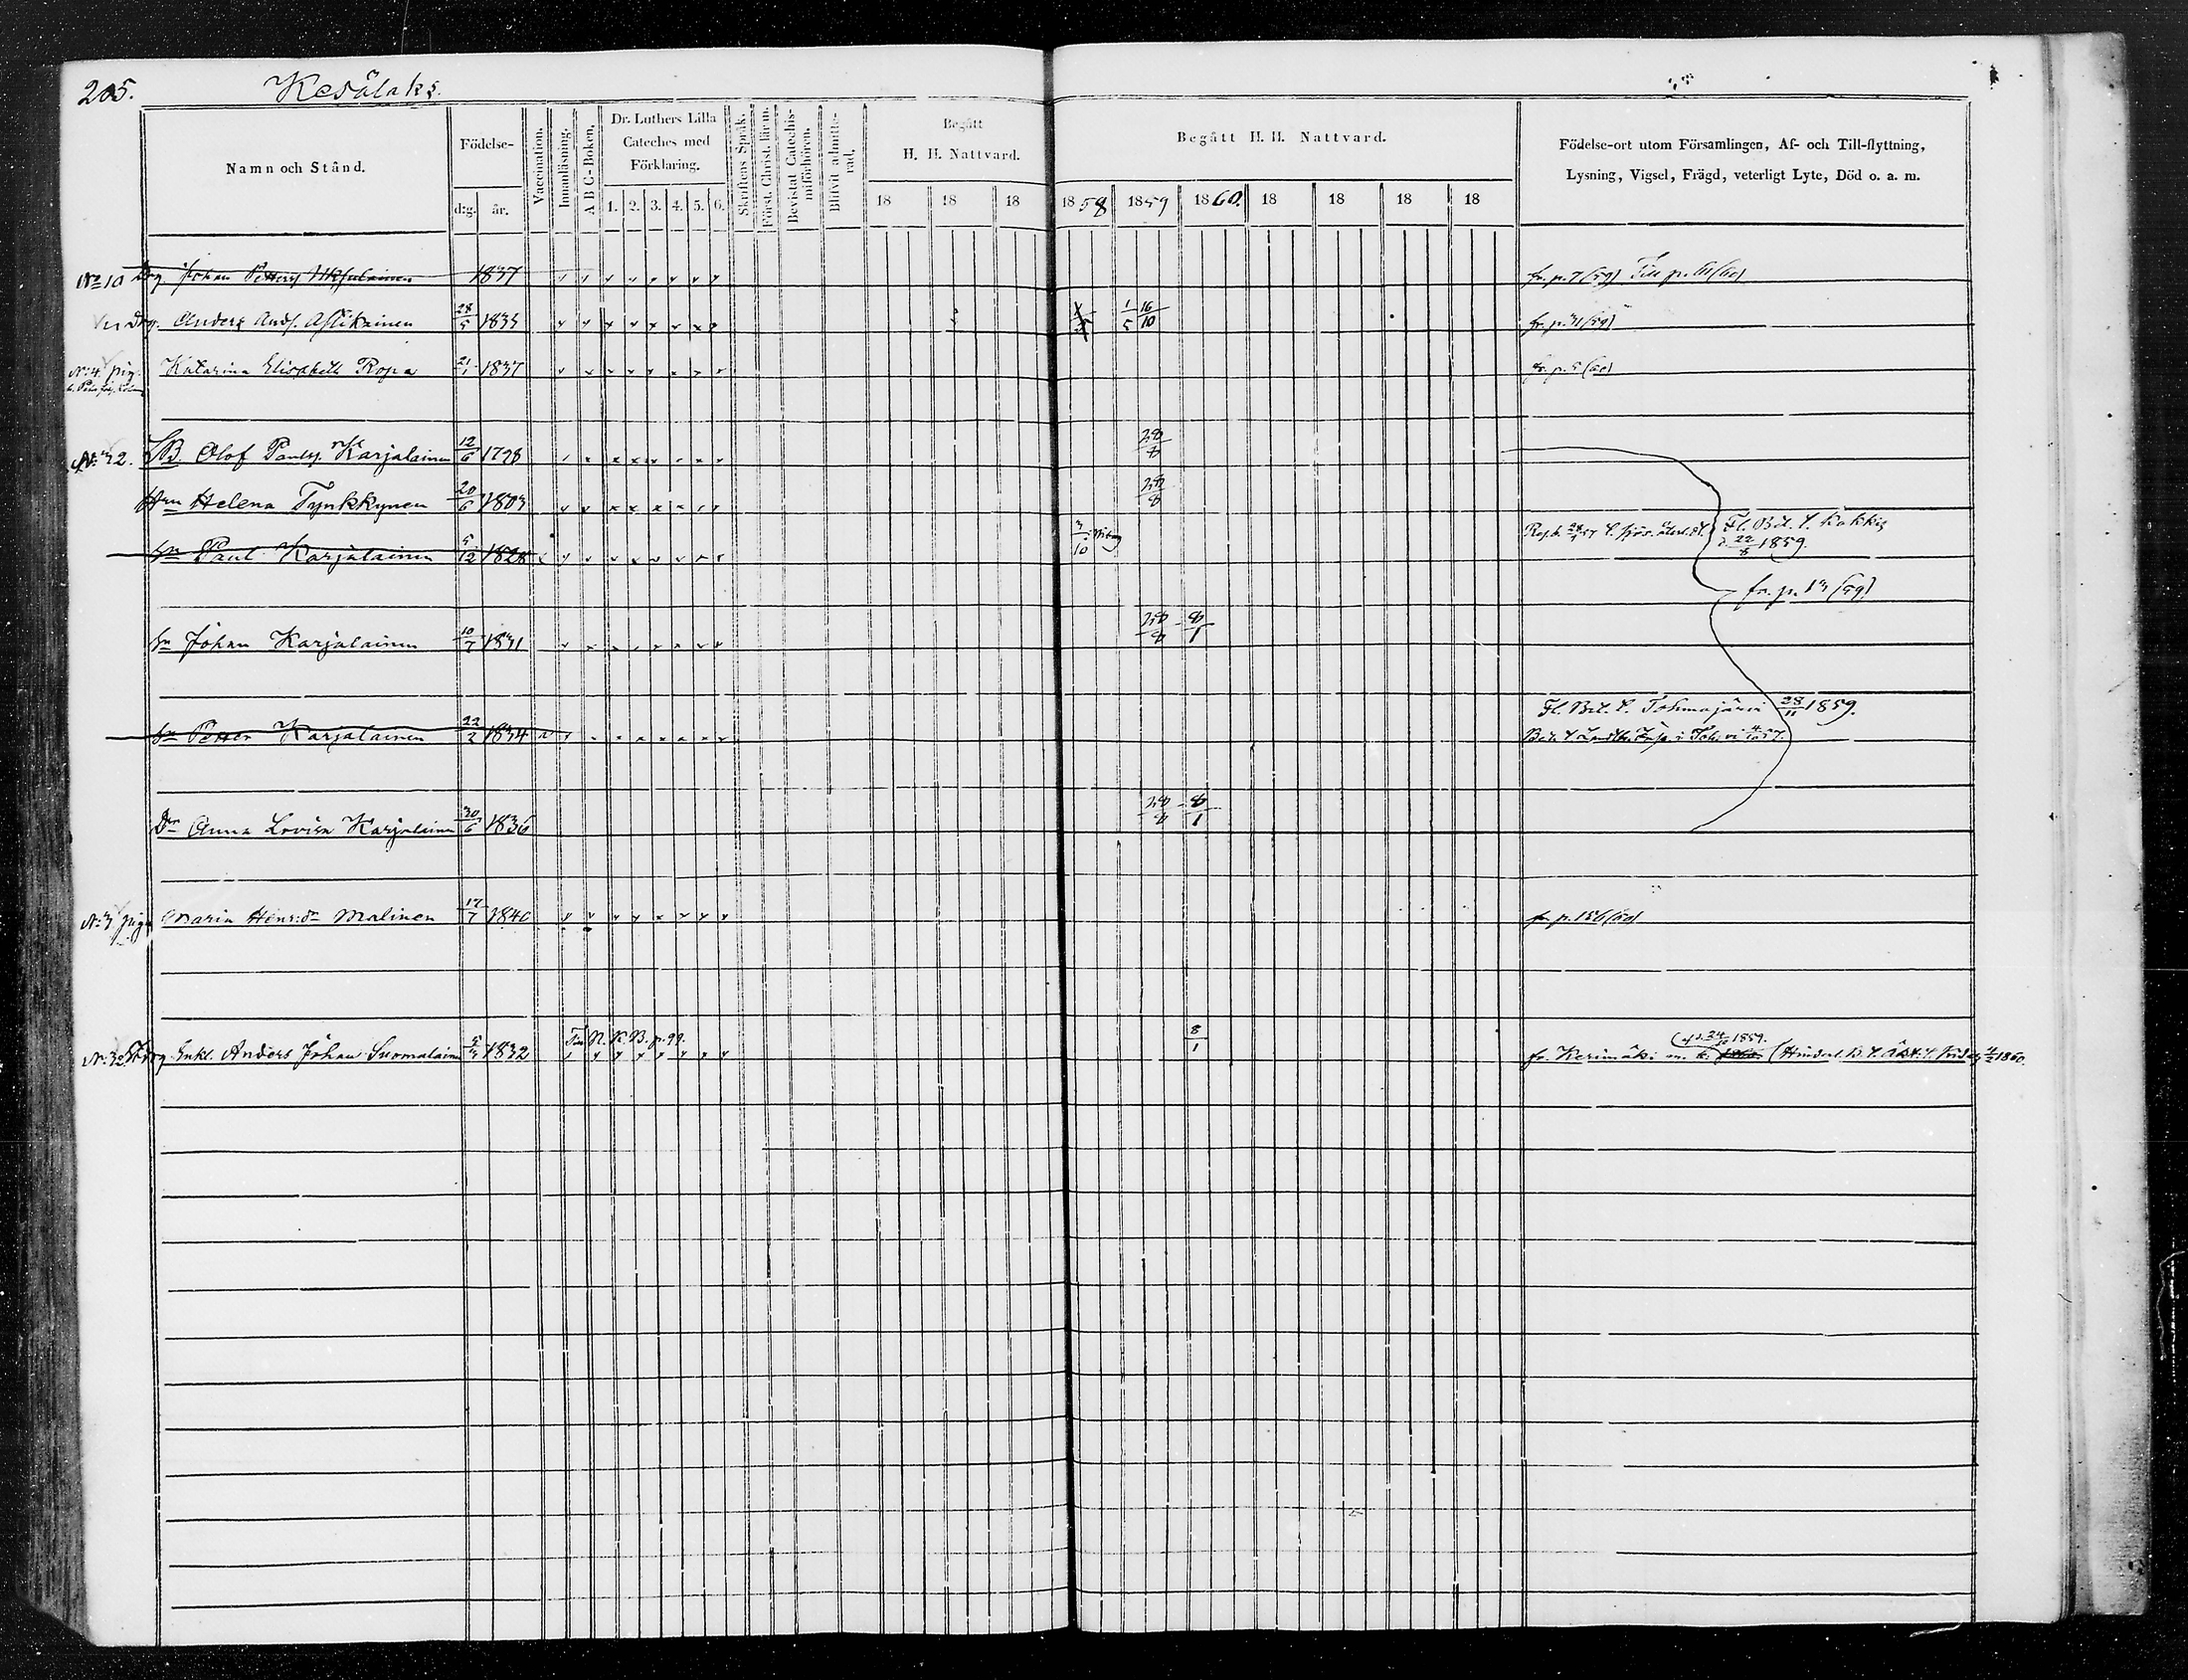 205. Kesälaks.
Namn och Stånd.
Födelse-
d:g. år.
Vaccination.
Innanläsning.
A B C-Boken.
Dr. Luthers Lilla
Cateches med
Förklaring.
1. 2. 3. 4. 5. 6.
Skriftens Språk.
Först. Christ. lär:n.
Bevistat Catechis-
miförhören.
Blifvit admitte-
rad.
Begått
H. H. Nattvard.
18 18 18
Begått H. H. Nattvard.
1858 1859 1860. 18 18 18 18
Födelse-ort utom Församlingen, Af- och Till-flyttning,
Lysning, Vigsel, Frägd, veterligt Lyte, Död o. a. m.
No 10 Drg. Johan Petterss. 1837 fr. p. 7 (59) Till p. (60)
Drg. Anders Ands. Asikainen 28/5 1835 1/5 16/10 fr. p. 31 (59)
No 4 pig. Katarina Elisabeth Ropa 21/1 1837 fr. p. 5 (60)
No 32. Olof Paulss. Karjalainen 12/6 1798 28/8
Hn Helena Tynkkynen 20/6 1803 28/8
Sn Paul Karjalainen 5/12 1828 3/10 Fl. Bet. t. d. 22/8 1859.
fr. p. 13 (59)
Sn Johan Karjalainen 10/7 1831 28/8 8/1
Fl. Bet. t. Tohmajärvi 28/11 1859.
Sn Petter Karjalainen 22/2 1834
Dn Anna Lovisa Karjalainen 30/6 1836 28/8 8/1
No 3 pig. Maria Henr:dr Malinen 17/7 1840 fr. p. 156 (60)
Till N. K. B. p. 99.
No 32 Enkl. Anders Johan Suomalainen 1832 8/1 fr. Kerimäki 1859. 1860.